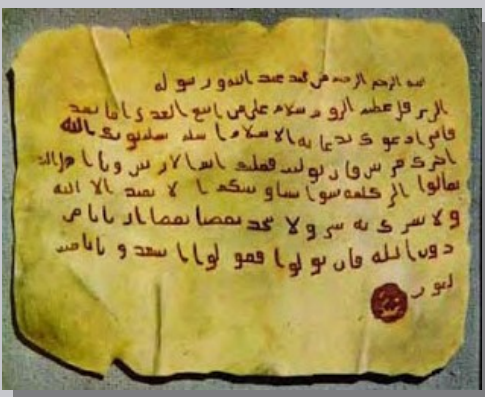 بسم الله الرحمن الرحيم من محمد عبد الله ورسوله
الى هرقل عظيم الروم سلام على من اتبع الهدى اما بعد
فانى ادعوك بدعاية الاسلام اسلم تسلم يوتك الله
اجرك مرتين فان توليت فعليك اثم الاريسين ويا اهل الكتاب
تعالوا الى كلمة سوا بيننا وبينكم الا نعبد الا الله
ولا نشرك به شيئا ولا يتخذ بعضنا بعضا اربابا من
دون الله فان تولوا فقولوا اشهدوا بانا مس
لمون